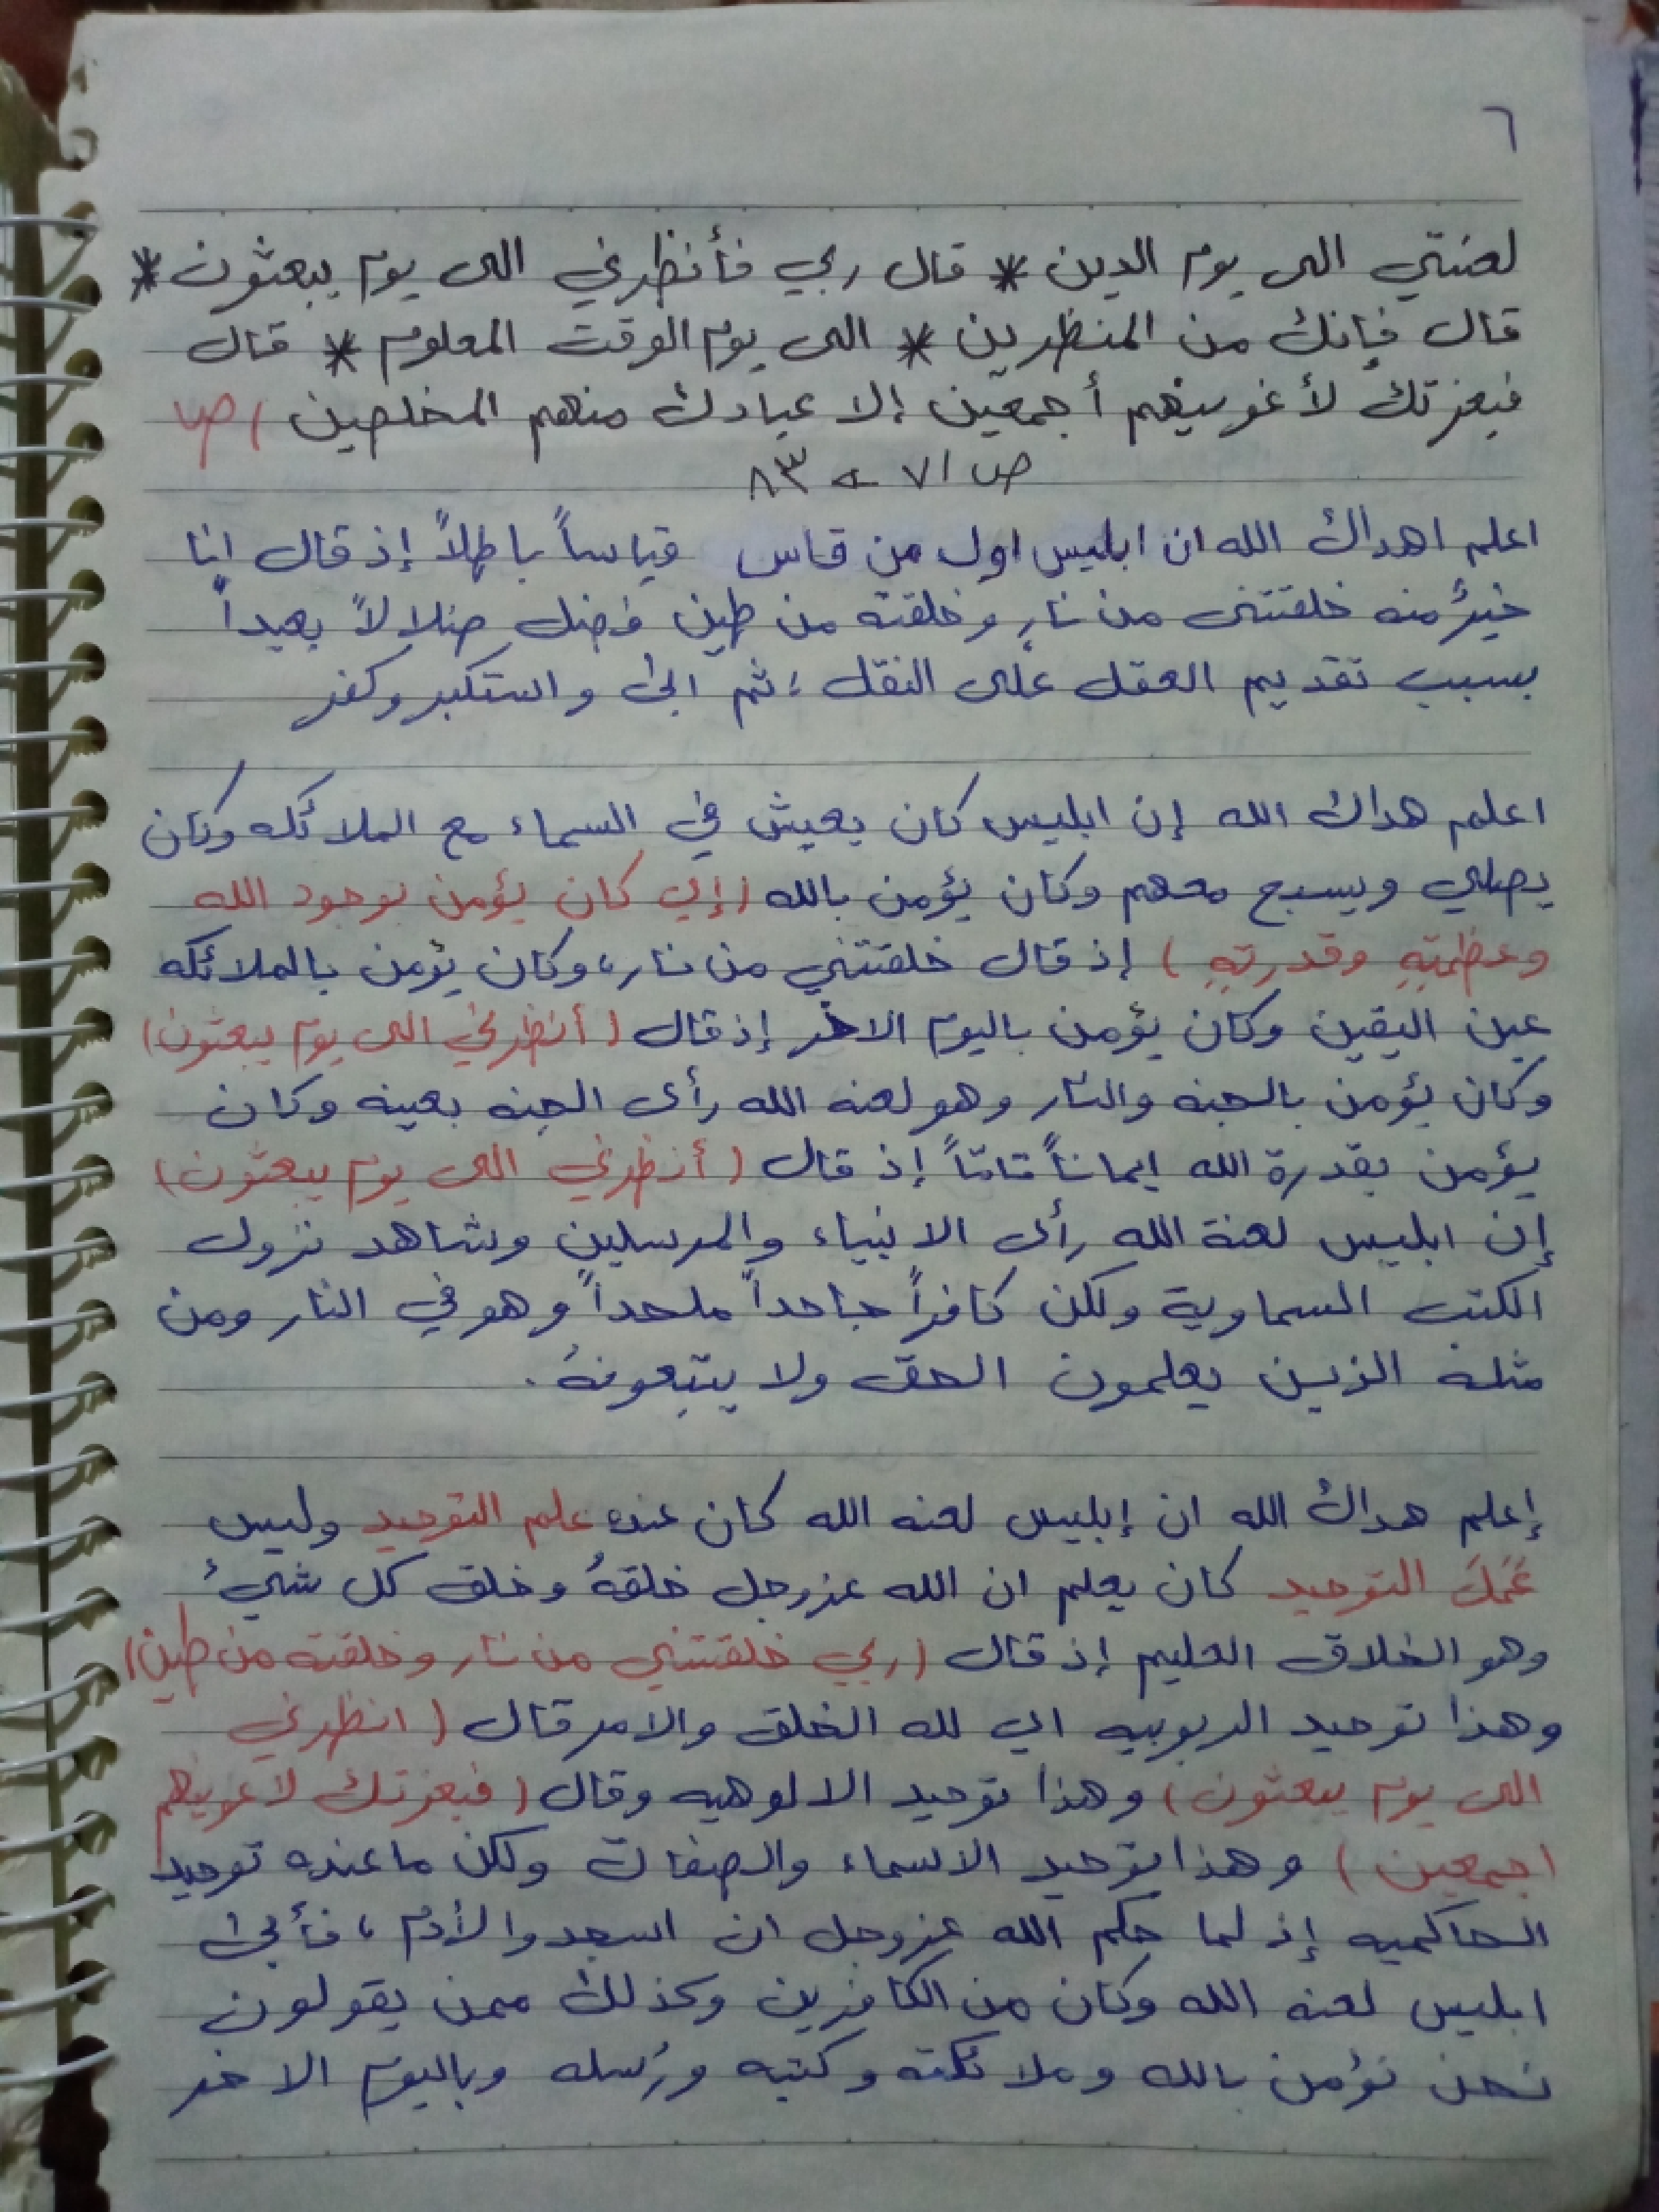 ٦
لعنتي الى يوم الدين * قال ربي فأنظرني الى يوم يبعثون *
قال فإنك من المنظرين * الى يوم الوقت المعلوم * قال
فبعزتك لأغوينهم أجمعين إلا عبادك منهم المخلصين ) ص
ص ٧١ ← ٨٣
اعلم اهداك الله ان ابليس اول من قاس قياساً باطلاً إذ قال انا
خيرٌ منه خلقتنى من نارٍ وخلقته من طين فضل ضلالاً بعيداً
بسبب تقديم العقل على النقل ، ثم ابى واستكبر وكفر
اعلم هداك الله إن ابليس كان يعيش في السماء مع الملائكه وكان
يصلي ويسبح معهم وكان يؤمن بالله (إي كان يؤمن بوجود الله
وعظمتهِ وقدرتهِ ) إذ قال خلقتني من نار، وكان يؤمن بالملائكه
عين اليقين وكان يؤمن باليوم الاخر إذ قال ( أنظرني الى يوم يبعثون)
وكان يؤمن بالجنه والنار وهو لعنه الله رأى الجنه بعينه وكان
يؤمن بقدرة الله ايماناً تامّاً إذ قال ( أنظرني الى يوم يبعثون)
إن ابليس لعنة الله رأى الانبياء والمرسلين وشاهد نزول
الكتب السماوية ولكن كافراً جاحداً ملحداً وهو في النار ومن
مثله الذين يعلمون الحق ولا يتبِعونهُ .
إعلم هداك الله ان إبليس لعنه الله كان عنده علم التوحيد وليس
عَمَلَ التوحيد كان يعلم ان الله عزوجل خلقهُ وخلق كل شيءٌ
وهو الخلاق العليم إذ قال (ربي خلقتني من نار وخلقته من طين)
وهذا توحيد الربوبيه اي لله الخلق والامر قال ( انظرني
الى يوم يبعثون ) وهذا توحيد الالوهيه وقال ( فبعزتك لاغوينهم
اجمعين ) وهذا توحيد الاسماء والصفات ولكن ما عنده توحيد
الحاكميه إذ لما حكم الله عزوجل ان اسجدوا لأدم ، فأبى
ابليس لعنه الله وكان من الكافرين وكذلك ممن يقولون
نحن نؤمن بالله وملائكته وكتبه ورُسله وباليوم الاخر